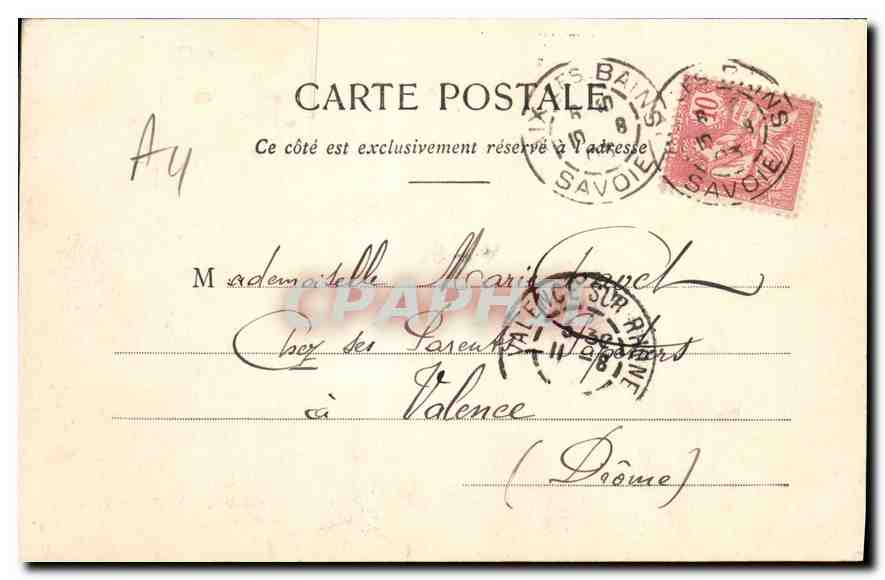 CARTE POSTALE
Ce côté est exclusivement réservé à l'adresse
A4
AIX LES BAINS
SAVOIE
10
BAINS
SAVOIE
Mademoiselle Marie
VALENCE SUR RHONE
CPAPHIL
Chez ses Parents
à Valence
(Drôme)